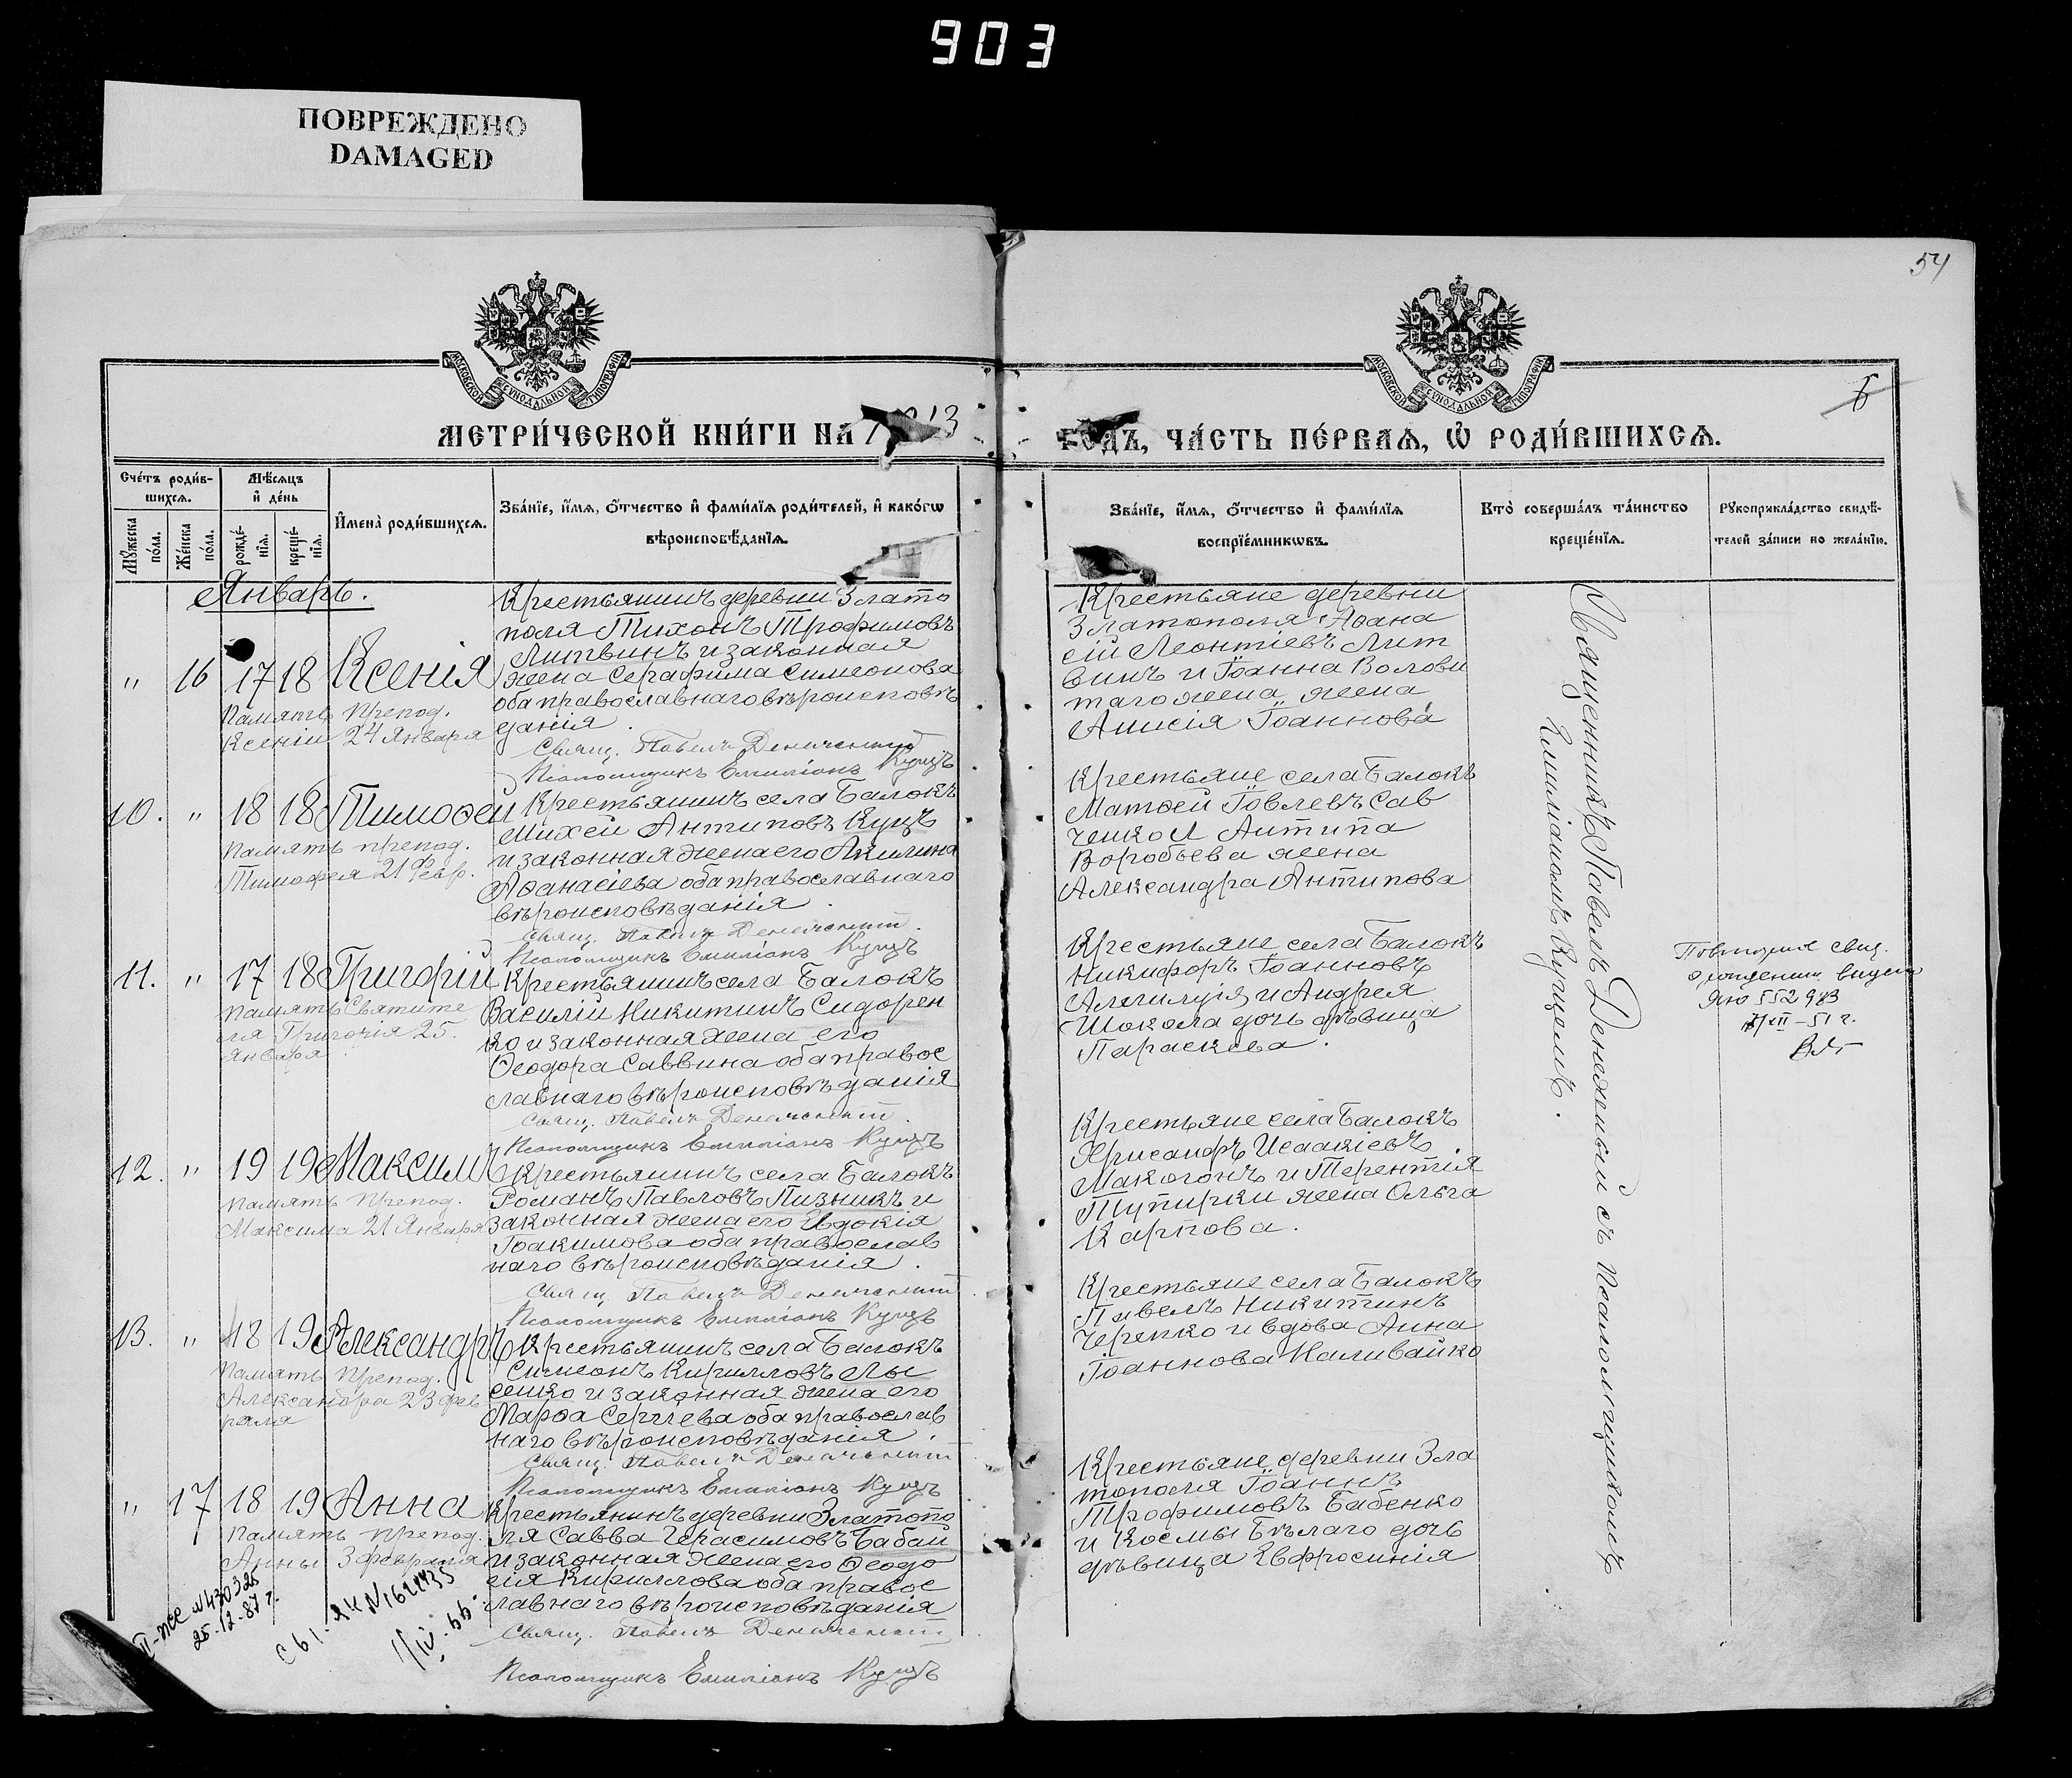 903
ПОВРЕЖДЕНО
DAMAGED
54
МОСКОВСКОЙ СѴНОДАЛЬНОЙ ТИПОГРАФІИ
МОСКОВСКОЙ СѴНОДАЛЬНОЙ ТИПОГРАФІИ
6
МЕТРИ́ЧЕСКОЙ КНИ́ГИ НА 1913
ГОДЪ, ЧА́СТЬ ПЕ́РВАЯ, Ѽ РОДИ́ВШИХСЯ.
Сче́тъ роди́в-
шихся.
Мѣ́сяцъ
и҆ де́нь
Мꙋ́жеска
по́ла.
Же́нска
по́ла.
рожде́-
нїя.
креще́-
нїя.
И҆мена̀ роди́вшихся.
Зва́нїе, и҆́мя, ѻ҆́тчество и҆ фами́лїя роди́телей, и҆ како́гѡ
вѣроисповѣ́данїя.
Зва́нїе, и҆́мя, ѻ҆́тчество и҆ фами́лїя
воспрїе́мникѡвъ.
Кто̀ соверша́лъ та́инство
креще́нїя.
Рꙋкоприкла́дство свидѣ́-
телей за́писи по жела́нїю.
Январь.
" 16 17 18 Ксенія
Память препод.
Ксеніи 24 Января
Крестьянинъ деревни Злато
поля Тихонъ Трофимовъ
Литвинъ и законная
жена Серафима Симеонова
оба православнаго вѣроисповѣ
данія.
Свящ. Павелъ Денежный
Псаломщикъ Емиліанъ Куцъ
Крестьяне деревни
Златополя Аѳана
сій Леонтіевъ Лит
винъ и Іоанна Волови
таго жена, жена
Анисія Іоаннова
10. " 18 18 Тимоѳей
Память препод.
Тимоѳея 21 Февр.
Крестьянинъ села Балокъ
Михей Антиповъ Куцъ
и законная жена его Акилина
Аѳанасіева оба православнаго
вѣроисповѣданія.
Свящ. Павелъ Денежный
Псаломщикъ Емиліанъ Куцъ
Крестьяне села Балокъ
Матѳей Іовлевъ Сав
ченко и Антипа
Воробьева жена
Александра Антипова
11. " 17 18 Григорій
Память Святите
ля Григорія 25
Января
Крестьянинъ села Балокъ
Василій Никитинъ Сидорен
ко и законная жена его
Ѳеодора Саввина оба правос
лавнаго вѣроисповѣданія
Свящ. Павелъ Денежный
Псаломщикъ Емиліанъ Куцъ
Крестьяне села Балокъ
Никифоръ Іоанновъ
Аллилуія и Андрея
Шокола дочь дѣвица
Параскева.
Повторная свид.
о рождении выдано
ЯЮ 552983
XII-51 г.
12. " 19 19 Максимъ
Память препод.
Максима 21 Января
Крестьянинъ села Балокъ
Романъ Павловъ Пизникъ и
законная жена его Евдокія
Іоакимова оба православ
наго вѣроисповѣданія.
Свящ. Павелъ Денежный
Псаломщикъ Емиліанъ Куцъ
Крестьяне села Балокъ
Хрисанфъ Исаакіевъ
Макогонъ и Терентія
Тупирки жена Ольга
Карпова.
13. " 18 19 Александръ
Память препод.
Александра 23 фев
раля
Крестьянинъ села Балокъ
Симеонъ Кирилловъ Лы
сенко и законная жена его
Марѳа Сергѣева оба православ
наго вѣроисповѣданія.
Свящ. Павелъ Денежный
Псаломщикъ Емиліанъ Куцъ
Крестьяне села Балокъ
Павелъ Никитинъ
Черепко и вдова Анна
Іоаннова Наливайко
" 17 18 19 Анна
Память препод.
Анны 3 февраля
Крестьянинъ деревни Златопо
ля Савва Герасимовъ Бабай
и законная жена его Ѳеодо
сія Кириллова оба правос
лавнаго вѣроисповѣданія
Свящ. Павелъ Денежный
Псаломщикъ Емиліанъ Куцъ
Крестьяне деревни Зла
тополя Іоаннъ
Трофимовъ Бабенко
и Космы Бѣлаго дочь
дѣвица Евфросинія
Священникъ Павелъ Денежный съ псаломщикомъ
Емиліаномъ Куцемъ.
II-ЖС №430325
25-12-87 г.